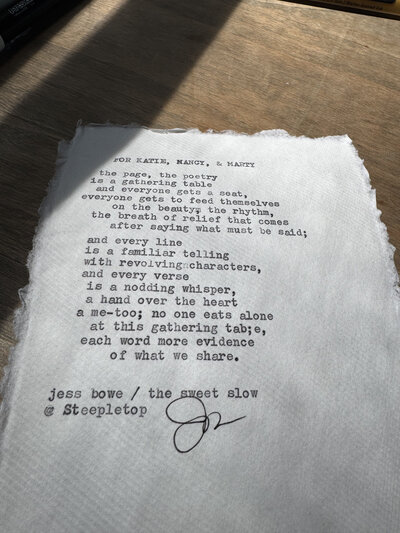 FOR KATIE, NANCY, & MARTY
the page, the poetry
is a gathering table
and everyone gets a seat,
everyone gets to feed themselves
on the beauty, the rhythm,
the breath of relief that comes
after saying what must be said;
and every line
is a familiar telling
with revolving characters,
and every verse
is a nodding whisper,
a hand over the heart
a me-too; no one eats alone
at this gathering tab;e,
each word more evidence
of what we share.
jess bowe / the sweet slow
@ Steepletop